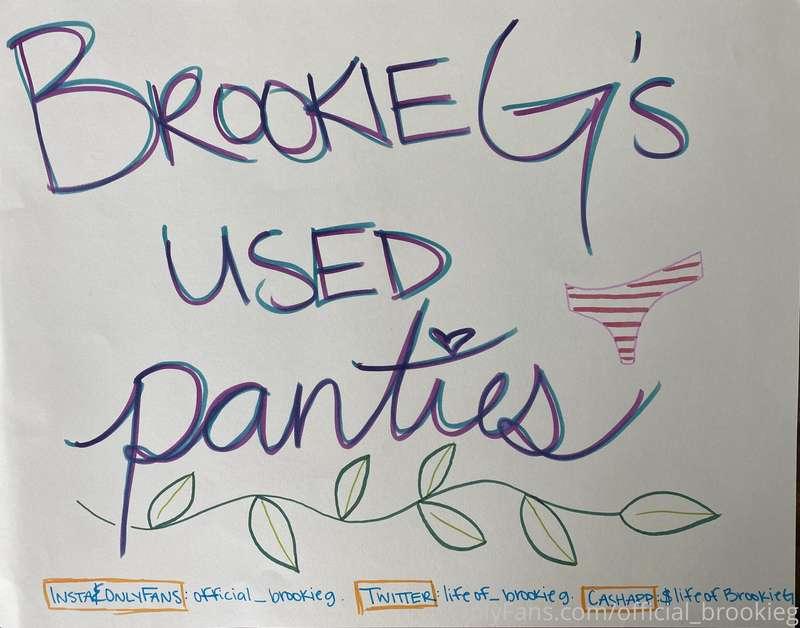 BROOKIE G's
USED
panties
INSTA&ONLYFANS: official_brookieg. TWITTER: life of_brookieg. CASHAPP: $lifeofBrookieG
onlyFans.com/official_brookieg